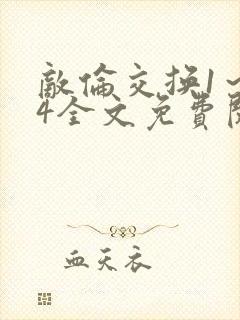 敵倫交换1～
4全文免費閱
血天衣